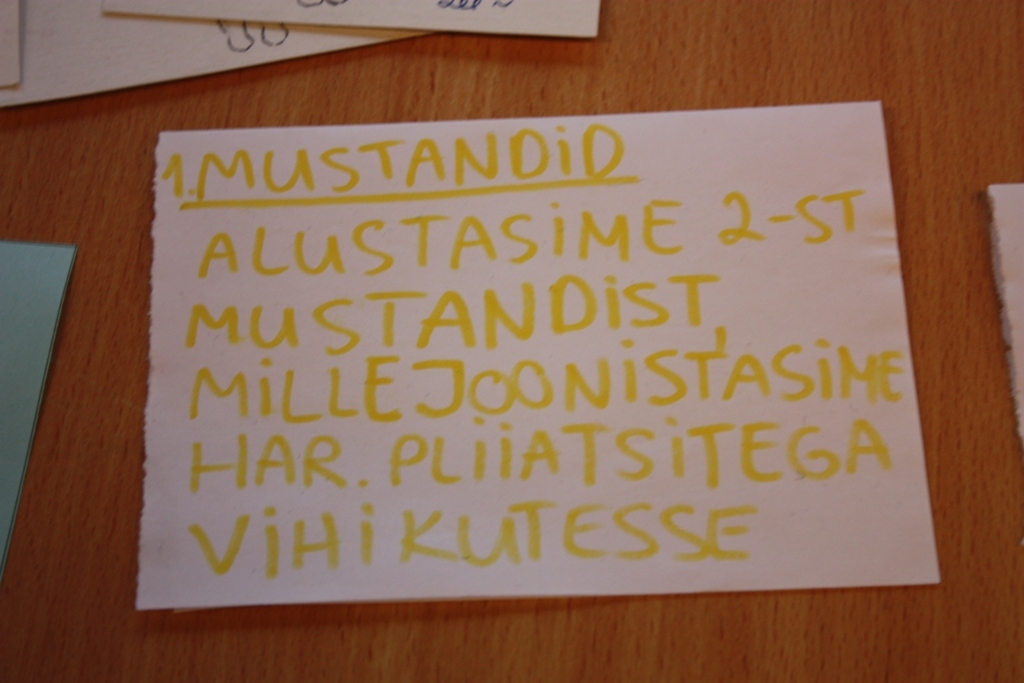 1. MUSTANDID
ALUSTASIME 2-ST
MUSTANDIST,
MILLE JOONISTASIME
HAR. PLIIATSITEGA
VIHIKUTESSE